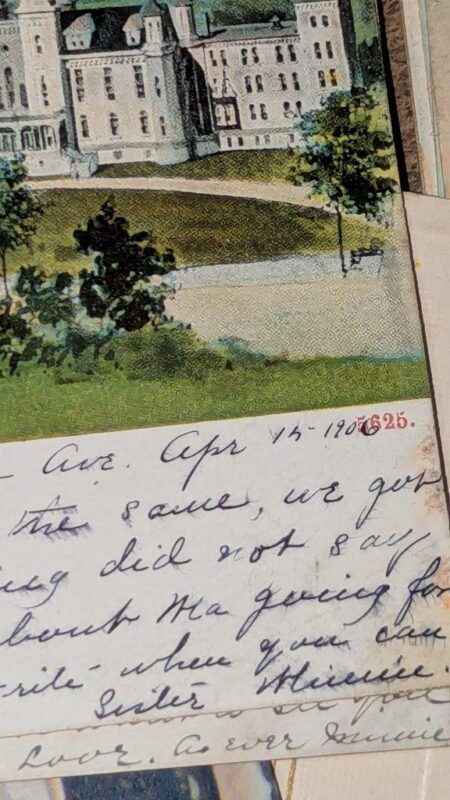 Ave. Apr 15-1906 5625.
the same, we got
did not say
bout Ma going for
when you can
Sister Minnie.
to see you
Love. As ever Minnie